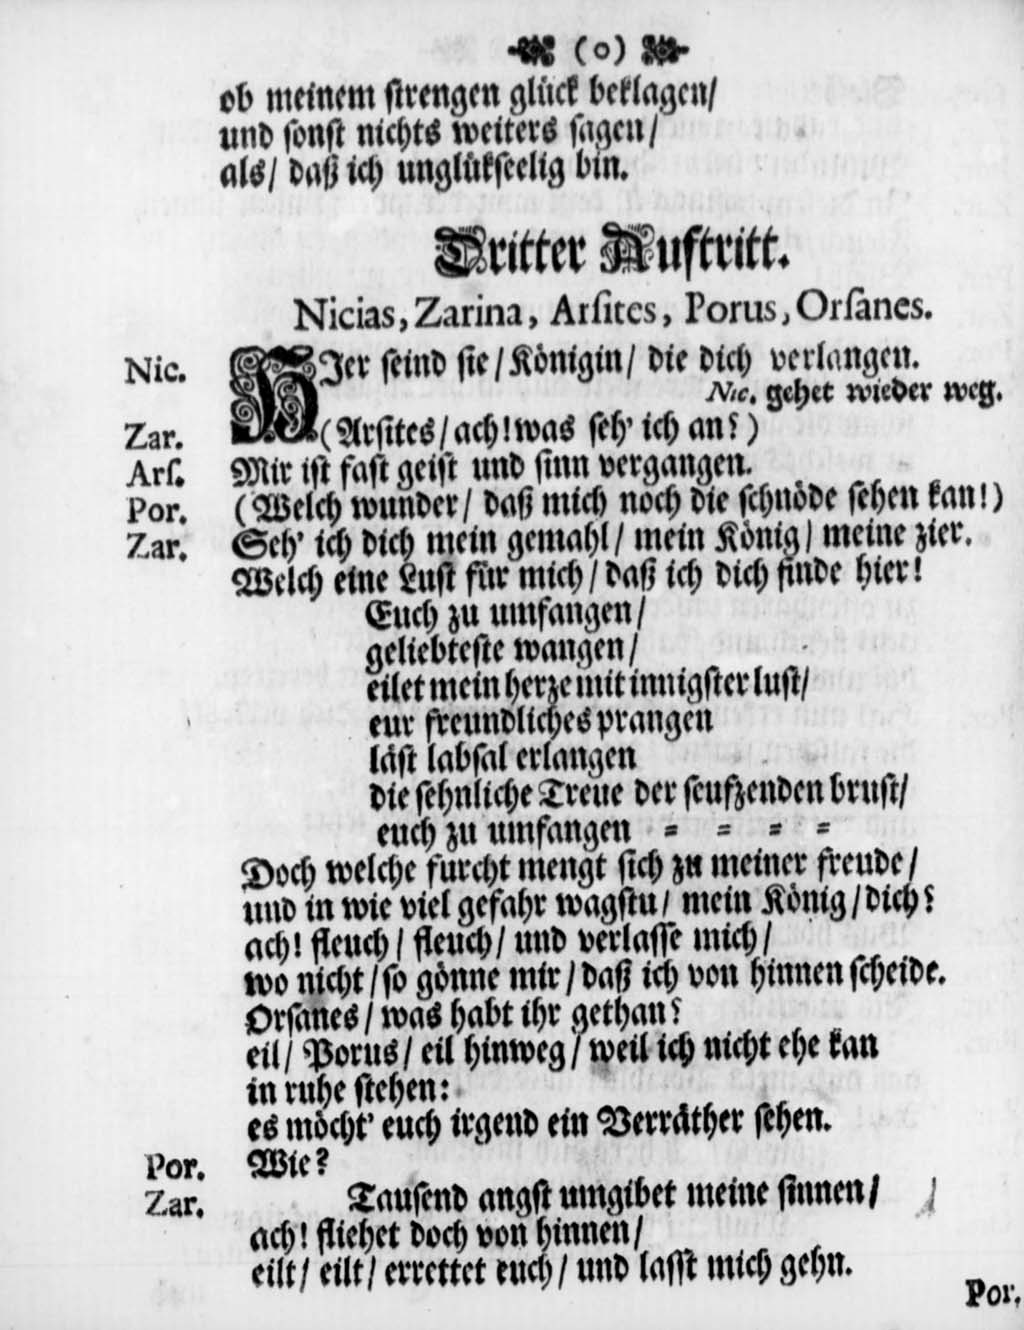 (o)
ob meinem strengen glück beklagen/
und sonst nichts weiters sagen/
als/ daß ich unglükseelig bin.
Dritter Auftritt.
Nicias, Zarina, Arsites, Porus, Orsanes.
Nic. HJer seind sie/ Königin/ die dich verlangen.
Nic. gehet wieder weg.
Zar. (Arsites/ ach! was seh' ich an?)
Ars. Mir ist fast geist und sinn vergangen.
Por. (Welch wunder/ daß mich noch die schnöde sehen kan!)
Zar. Seh' ich dich mein gemahl/ mein König/ meine zier.
Welch eine Lust für mich/ daß ich dich finde hier!
Euch zu umfangen/
geliebteste wangen/
eilet mein herze mit innigster lust/
eur freundliches prangen
läst labsal erlangen
die sehnliche Treue der seufzenden brust/
euch zu umfangen = = = =
Doch welche furcht mengt sich zu meiner freude/
und in wie viel gefahr wagstu/ mein König/ dich?
ach! fleuch/ fleuch/ und verlasse mich/
wo nicht/ so gönne mir/ daß ich von hinnen scheide.
Orsanes/ was habt ihr gethan?
eil/ Porus/ eil hinweg/ weil ich nicht ehe kan
in ruhe stehen:
es möcht' euch irgend ein Verräther sehen.
Por. Wie?
Zar. Tausend angst umgibet meine sinnen/
ach! fliehet doch von hinnen/
eilt/ eilt/ errettet euch/ und lasst mich gehn.
Por.